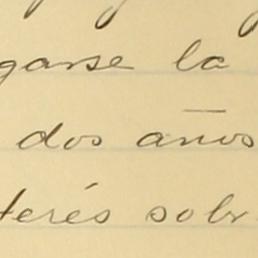 garse la
dos años
terés sobr